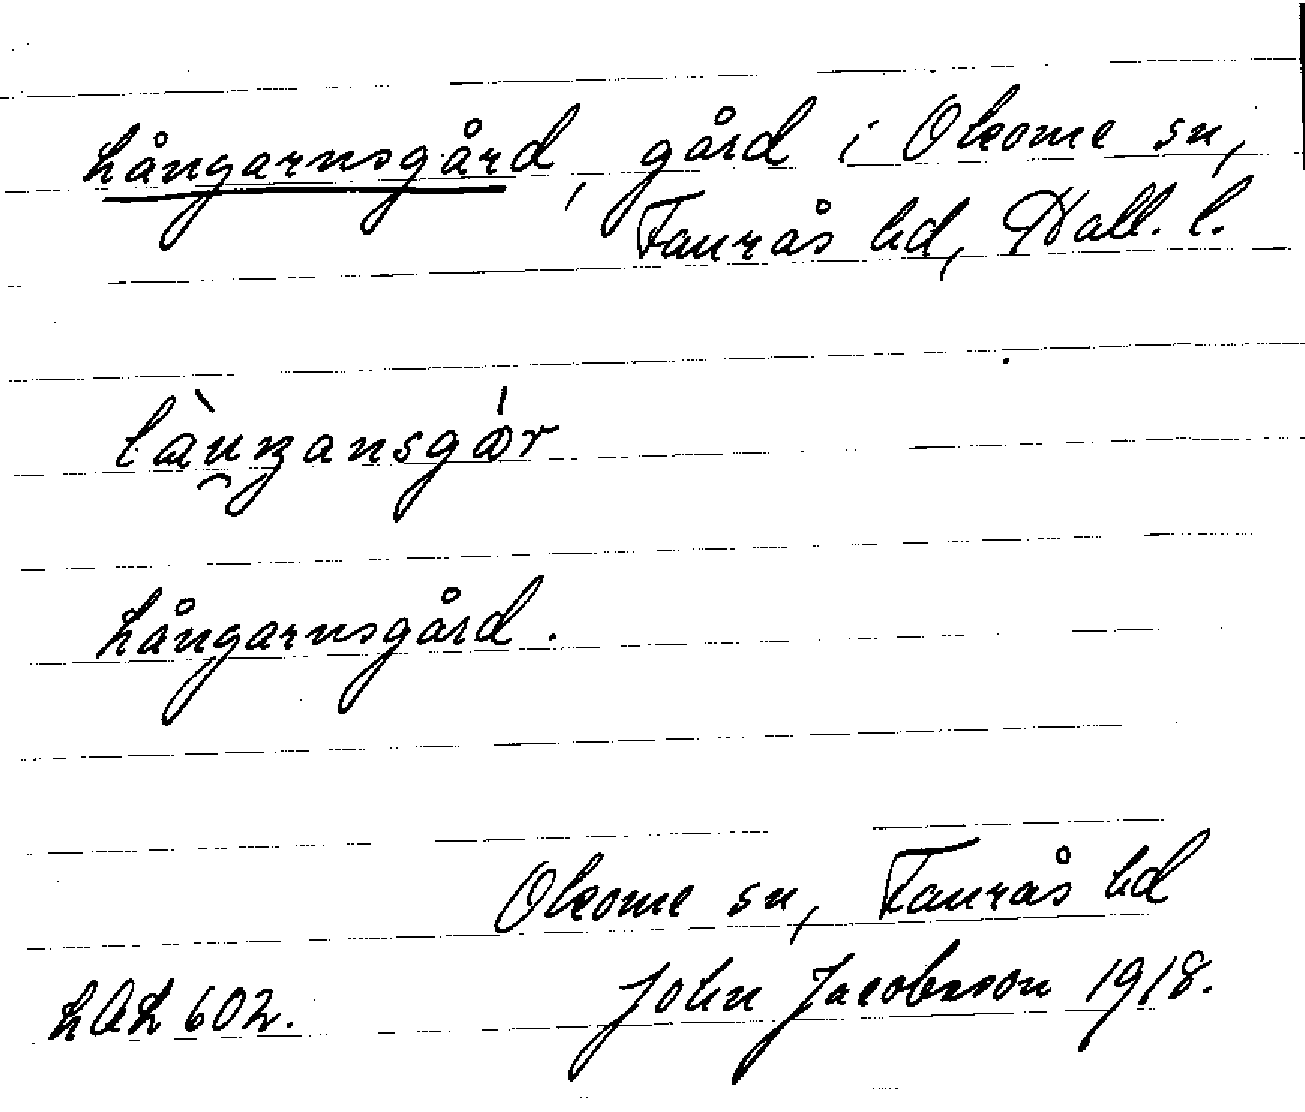 Långarnsgård, gård i Okome sn,
Faurås hd, Hall. l.
Långarnsgård.
Okome sn, Faurås hd
LAL 602. John Jacobsson 1918.